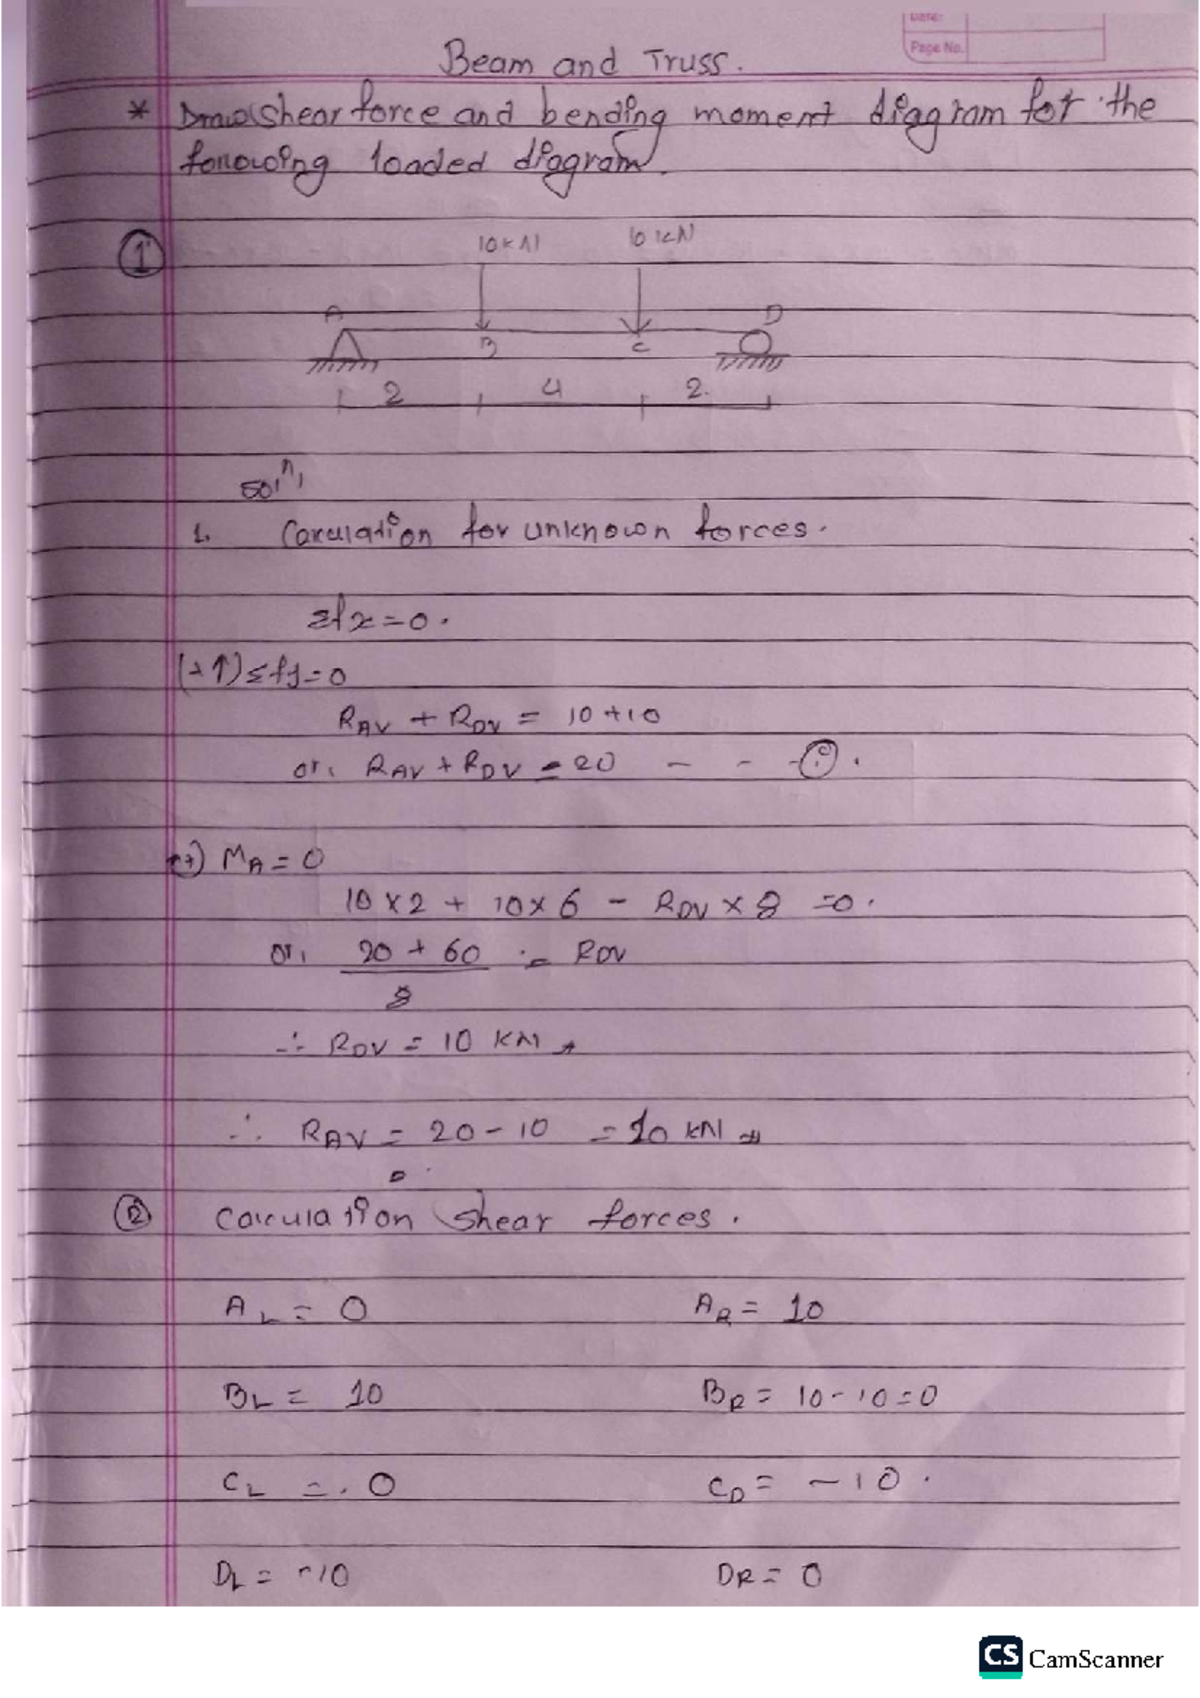 Date:
Page No.
Beam and Truss.
* Draw shear force and bending moment diagram for the
following loaded diagram.
1
10kN 10kN
A D
B C
2 4 2
Solⁿ,
1. Calculation for unknown forces.
Σfx=0.
(+↑)Σfy=0
RAV + RDV = 10+10
or, RAV + RDV = 20 - - - (i).
MA = 0
10×2 + 10×6 - RDV × 8 =0.
or, 20 + 60 = RDV
8
∴ RDV = 10 KN
∴ RAV = 20-10 = 10 kN
(2) Calculation shear forces.
AL = 0 AR = 10
BL = 10 BR = 10-10=0
CL = 0 CD = -10.
DL = -10 DR = 0
CS CamScanner